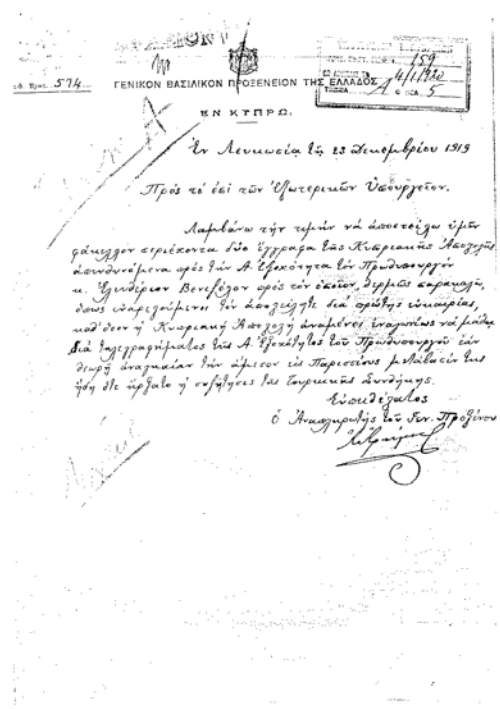 159
4/1/920
ΤΜΗΜΑ Α ΘΕΣ. 5
Πρωτ. 574
ΓΕΝΙΚΟΝ ΒΑΣΙΛΙΚΟΝ ΠΡΟΞΕΝΕΙΟΝ ΤΗΣ ΕΛΛΑΔΟΣ
ΕΝ ΚΥΠΡΩ.
Ἐν Λευκωσίᾳ τῇ 23 Δεκεμβρίου 1919
Πρὸς τὸ ἐπὶ τῶν Ἐξωτερικῶν Ὑπουργεῖον.
Λαμβάνω τὴν τιμὴν νὰ ἀποστείλω ὑμῖν
φάκελλον περιέχοντα δύο ἔγγραφα τῆς Κυπριακῆς Ἀποστολῆς
ἀπευθυνόμενα πρὸς τὴν Α. Ἐξοχότητα τὸν Πρωθυπουργὸν
κ. Ἐλευθέριον Βενιζέλον πρὸς τὸν ὁποῖον, θερμῶς παρακαλῶ,
ὅπως εὐαρεστούμενοι τὸν ἀποστείλητε διὰ πρώτης εὐκαιρίας,
καθ' ὅσον ἡ Κυπριακὴ Ἀποστολὴ ἀναμένει ἐναγωνίως νὰ μάθῃ
διὰ τηλεγραφήματος τῆς Α. Ἐξοχότητος τοῦ Πρωθυπουργοῦ ἐὰν
θεωρῇ ἀναγκαίαν τὴν ἄμεσον εἰς Παρισίους μετάβασίν της
ἤδη ὅτε ἤρξατο ἡ συζήτησις τῆς τουρκικῆς συνθήκης.
Εὐπειθέστατος
ὁ Ἀναπληρωτὴς τοῦ Γεν. Προξένου